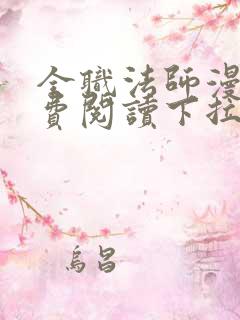 全職法師漫
費閱讀下拉
烏昌